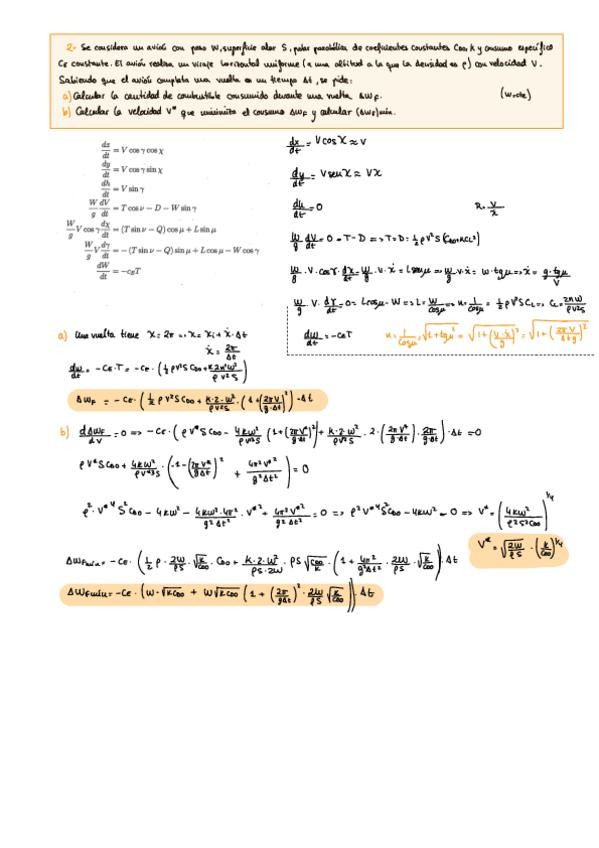 2.- Se considera un avión con peso W, superficie alar S, polar parabólica de coeficientes constantes CD0, k y consumo específico
CE constante. El avión realiza un viraje horizontal uniforme (a una altitud a la que la densidad es ρ) con velocidad V.
Sabiendo que el avión completa una vuelta en un tiempo Δt, se pide:
a) Calcular la cantidad de combustible consumido durante una vuelta ΔWF. (W≈cte)
b) Calcular la velocidad V* que minimiza el consumo ΔWF y calcular (ΔWF)min.
dx/dt = V cos γ cos χ
dx/dt = V cos χ ≈ V
dy/dt = V cos γ sin χ
dy/dt = V sen χ ≈ Vχ
dh/dt = V sin γ
dh/dt = 0
R = V/ẋ
W/g dV/dt = T cos ν − D − W sin γ
W/g dV/dt = 0 = T - D => T = D = 1/2 ρV²S (CD0 + kCL²)
W/g V cos γ dχ/dt = (T sin ν − Q) cos μ + L sin μ
W/g · V · cos γ · dχ/dt = W/g · V · ẋ = L sen μ => W/g V · ẋ = W · tg μ => ẋ = g · tg μ / V
W/g V dγ/dt = −(T sin ν − Q) sin μ + L cos μ − W cos γ
W/g · V · dγ/dt = 0 = L cos μ - W => L = W/cos μ => n = 1/cos μ = 1/2 ρV²S CL => CL = 2nW/ρV²S
dW/dt = −cET
dW/dt = -CE T
n = 1/cos μ = √(1 + tg μ²) = √(1 + (V·ẋ/g)²) = √(1 + (2πV/Δt g)²)
a) Una vuelta tiene χ = 2π => χ = χi + ẋ · Δt
ẋ = 2π/Δt
dW/dt = -CE · T = -CE · (1/2 ρV²S CD0 + k2n²W²/ρV²S)
ΔWF = -CE · (1/2 ρV²S CD0 + k·2·W²/ρV²S · (1 + (2πV/g·Δt)²)) · Δt
b) dΔWF/dV = 0 => -CE · (ρV*S CD0 - 4kW²/ρV³S (1 + (2πV*/g·Δt)²) + k·2·W²/ρV²S · 2 · (2πV*/g·Δt) · 2π/g·Δt) · Δt = 0
ρV*S CD0 + 4kW²/ρV*³S · (-1 - (2πV*/gΔt)² + 4π²V*²/g²Δt²) = 0
ρ² · V*⁴ S² CD0 - 4kW² - 4kW²·4π²/g²Δt² · V*² + 4π²V*²/g²Δt² = 0 => ρ²V*⁴S²CD0 - 4kW² = 0 => V* = (4kW²/ρ²S²CD0)^1/4
V* = √(2W/ρS) · (k/CD0)^1/4
ΔWFmin = -CE · (1/2 ρ · 2W/ρS · √(k/CD0) · CD0 + k·2·W²/ρS·2W · ρS √(CD0/k) · (1 + 4π²/g²Δt² · 2W/ρS · √(k/CD0))) · Δt
ΔWFmin = -CE · (W · √(kCD0) + W√(kCD0) (1 + (2π/gΔt)² · 2W/ρS √(k/CD0))) · Δt